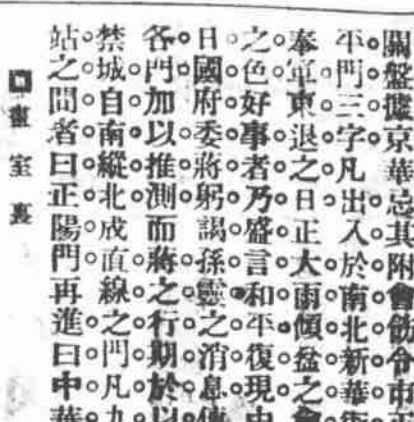 盤據京華忌其附會飭令市
平門三字凡出入於南北新華街
奉軍東退之日正大雨傾盆之會
之色好事者乃盛言和平復現
日國府委蔣躬謁孫靈之消息傳
各門加以推測而蔣之行期於以
禁城自南縱北成直線之門凡九
站之間者曰正陽門再進曰中華
室裏